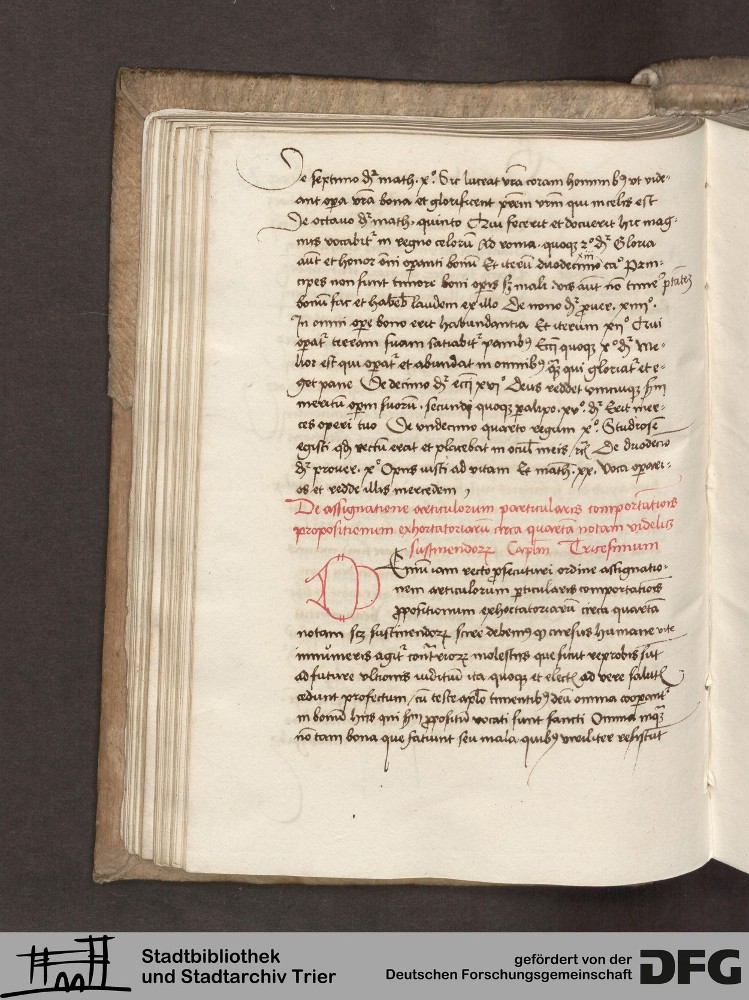 De septimo dr̄ math. x°. Sic luceat vr̄a coram hominibꝫ vt vide⸗
ant opera vr̄a bona et glorificent pr̄em vr̄m qui in celis est
De octauo dr̄ math. quinto Qui fecerit et docuerit hic mag⸗
nus vocabit᷑ in regno celorū Ad roma. quoqꝫ 2° dr̄ Gloria
aut̄ et honor om̄i operanti bonū Et iterū duodecimo xiii ca° Prin⸗
cipes non sunt timore boni operis sꝫ mali vis aut̄ nō time᷑ ptatē
bonū fac et habeb̄ laudem ex illo De nono dr̄ prouer. xiiii°.
In omni opere bono erit habundantia Et iterum xii° Qui
operat᷑ terram suam satiabit᷑ panibꝫ Ecc̄i quoqꝫ x° dr̄ Me⸗
lior est qui operat᷑ et abundat in omnibꝫ qꝫ qui gloriat᷑ et e⸗
get pane De decimo dr̄ ecc̄i xvi° Deus reddet vnicuiqꝫ scdm̄
meritū operū suorū. secundi quoqꝫ paralipo. xv°. dr̄ Erit mer⸗
ces operi tuo De vndecimo quarto regum x°. Studiose
egisti qd̄ rectū erat et placebat in ocul̄ meis / rc̄ De duodecio
dr̄ prouer. x° Opus iusti ad vitam Et math. xx. Voca operari⸗
os et redde illis mercedem
De assignatione articulorum particularis comportationis
propositionum exhortatoriarū circa quartā notam videlic̄
sustinendorꝝ Caplm̄ Tricesimum
DEmū iam recto prosecuturi ordine assignatio⸗
nem articulorum p̱ticularis comportatiōis
ꝓpositionum exhortatoriarū circa quartā
notam scꝫ sustinendorꝝ scire debemꝰ qꝫ cursus humane vite
innūmeris agit᷑ contrariorꝝ molestijs que sicut reprobis sūt
ad future vltionis iuditiū ita quoqꝫ et electis ad vere salutis
cedunt profectum / cū teste apl̄o timentibꝫ deū omnia cooperant᷑
in bonū hijs qui scdm̄ ꝓpositū vocati sunt sancti Omnia inqꝫ
nō tam bona que fatiunt seu mala quibꝫ viriliter resistūt
Stadtbibliothek
und Stadtarchiv Trier
gefördert von der
Deutschen Forschungsgemeinschaft
DFG